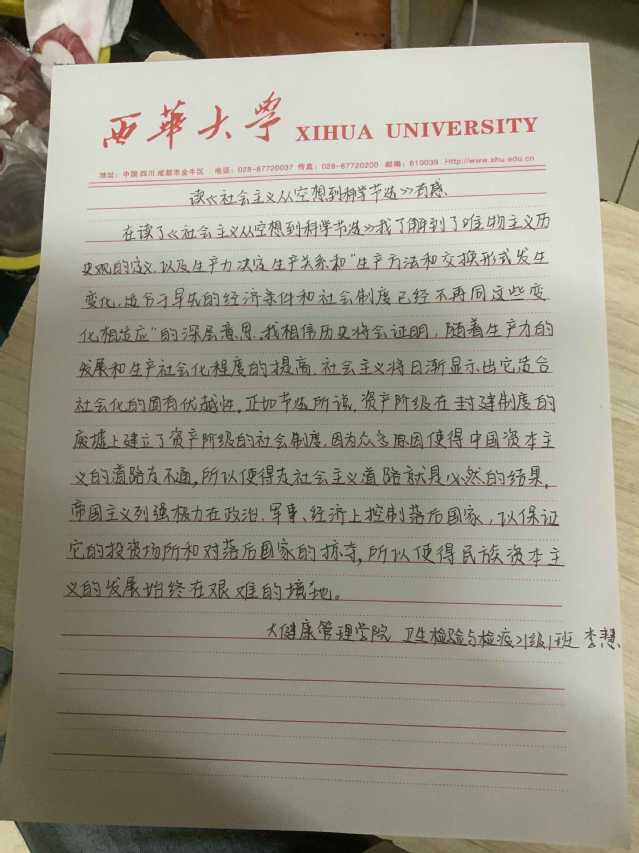 西華大学 XIHUA UNIVERSITY
地址：中国 四川 成都市金牛区 电话：028-87720037 传真：028-87720200 邮编：610039 Http://www.xhu.edu.cn
读《社会主义从空想到科学节选》有感
在读了《社会主义从空想到科学节选》我了解到了唯物主义历
史观的定义，以及生产力决定生产关系和“生产方法和交换形式发生
变化，适合于早先的经济条件和社会制度已经不再同这些变
化相适应”的深层意思。我相信历史将会证明，随着生产力的
发展和生产社会化程度的提高，社会主义将日渐显示出它适合
社会化的固有优越性。正如节选所说，资产阶级在封建制度的
废墟上建立了资产阶级的社会制度，因为众多原因使得中国资本主
义的道路走不通，所以使得走社会主义道路就是必然的结果，
帝国主义列强极力在政治、军事、经济上控制落后国家，以保证
它的投资场所和对落后国家的掠夺，所以使得民族资本主
义的发展始终在艰难的境地。
大健康管理学院 卫生检验与检疫21级1班 李慧